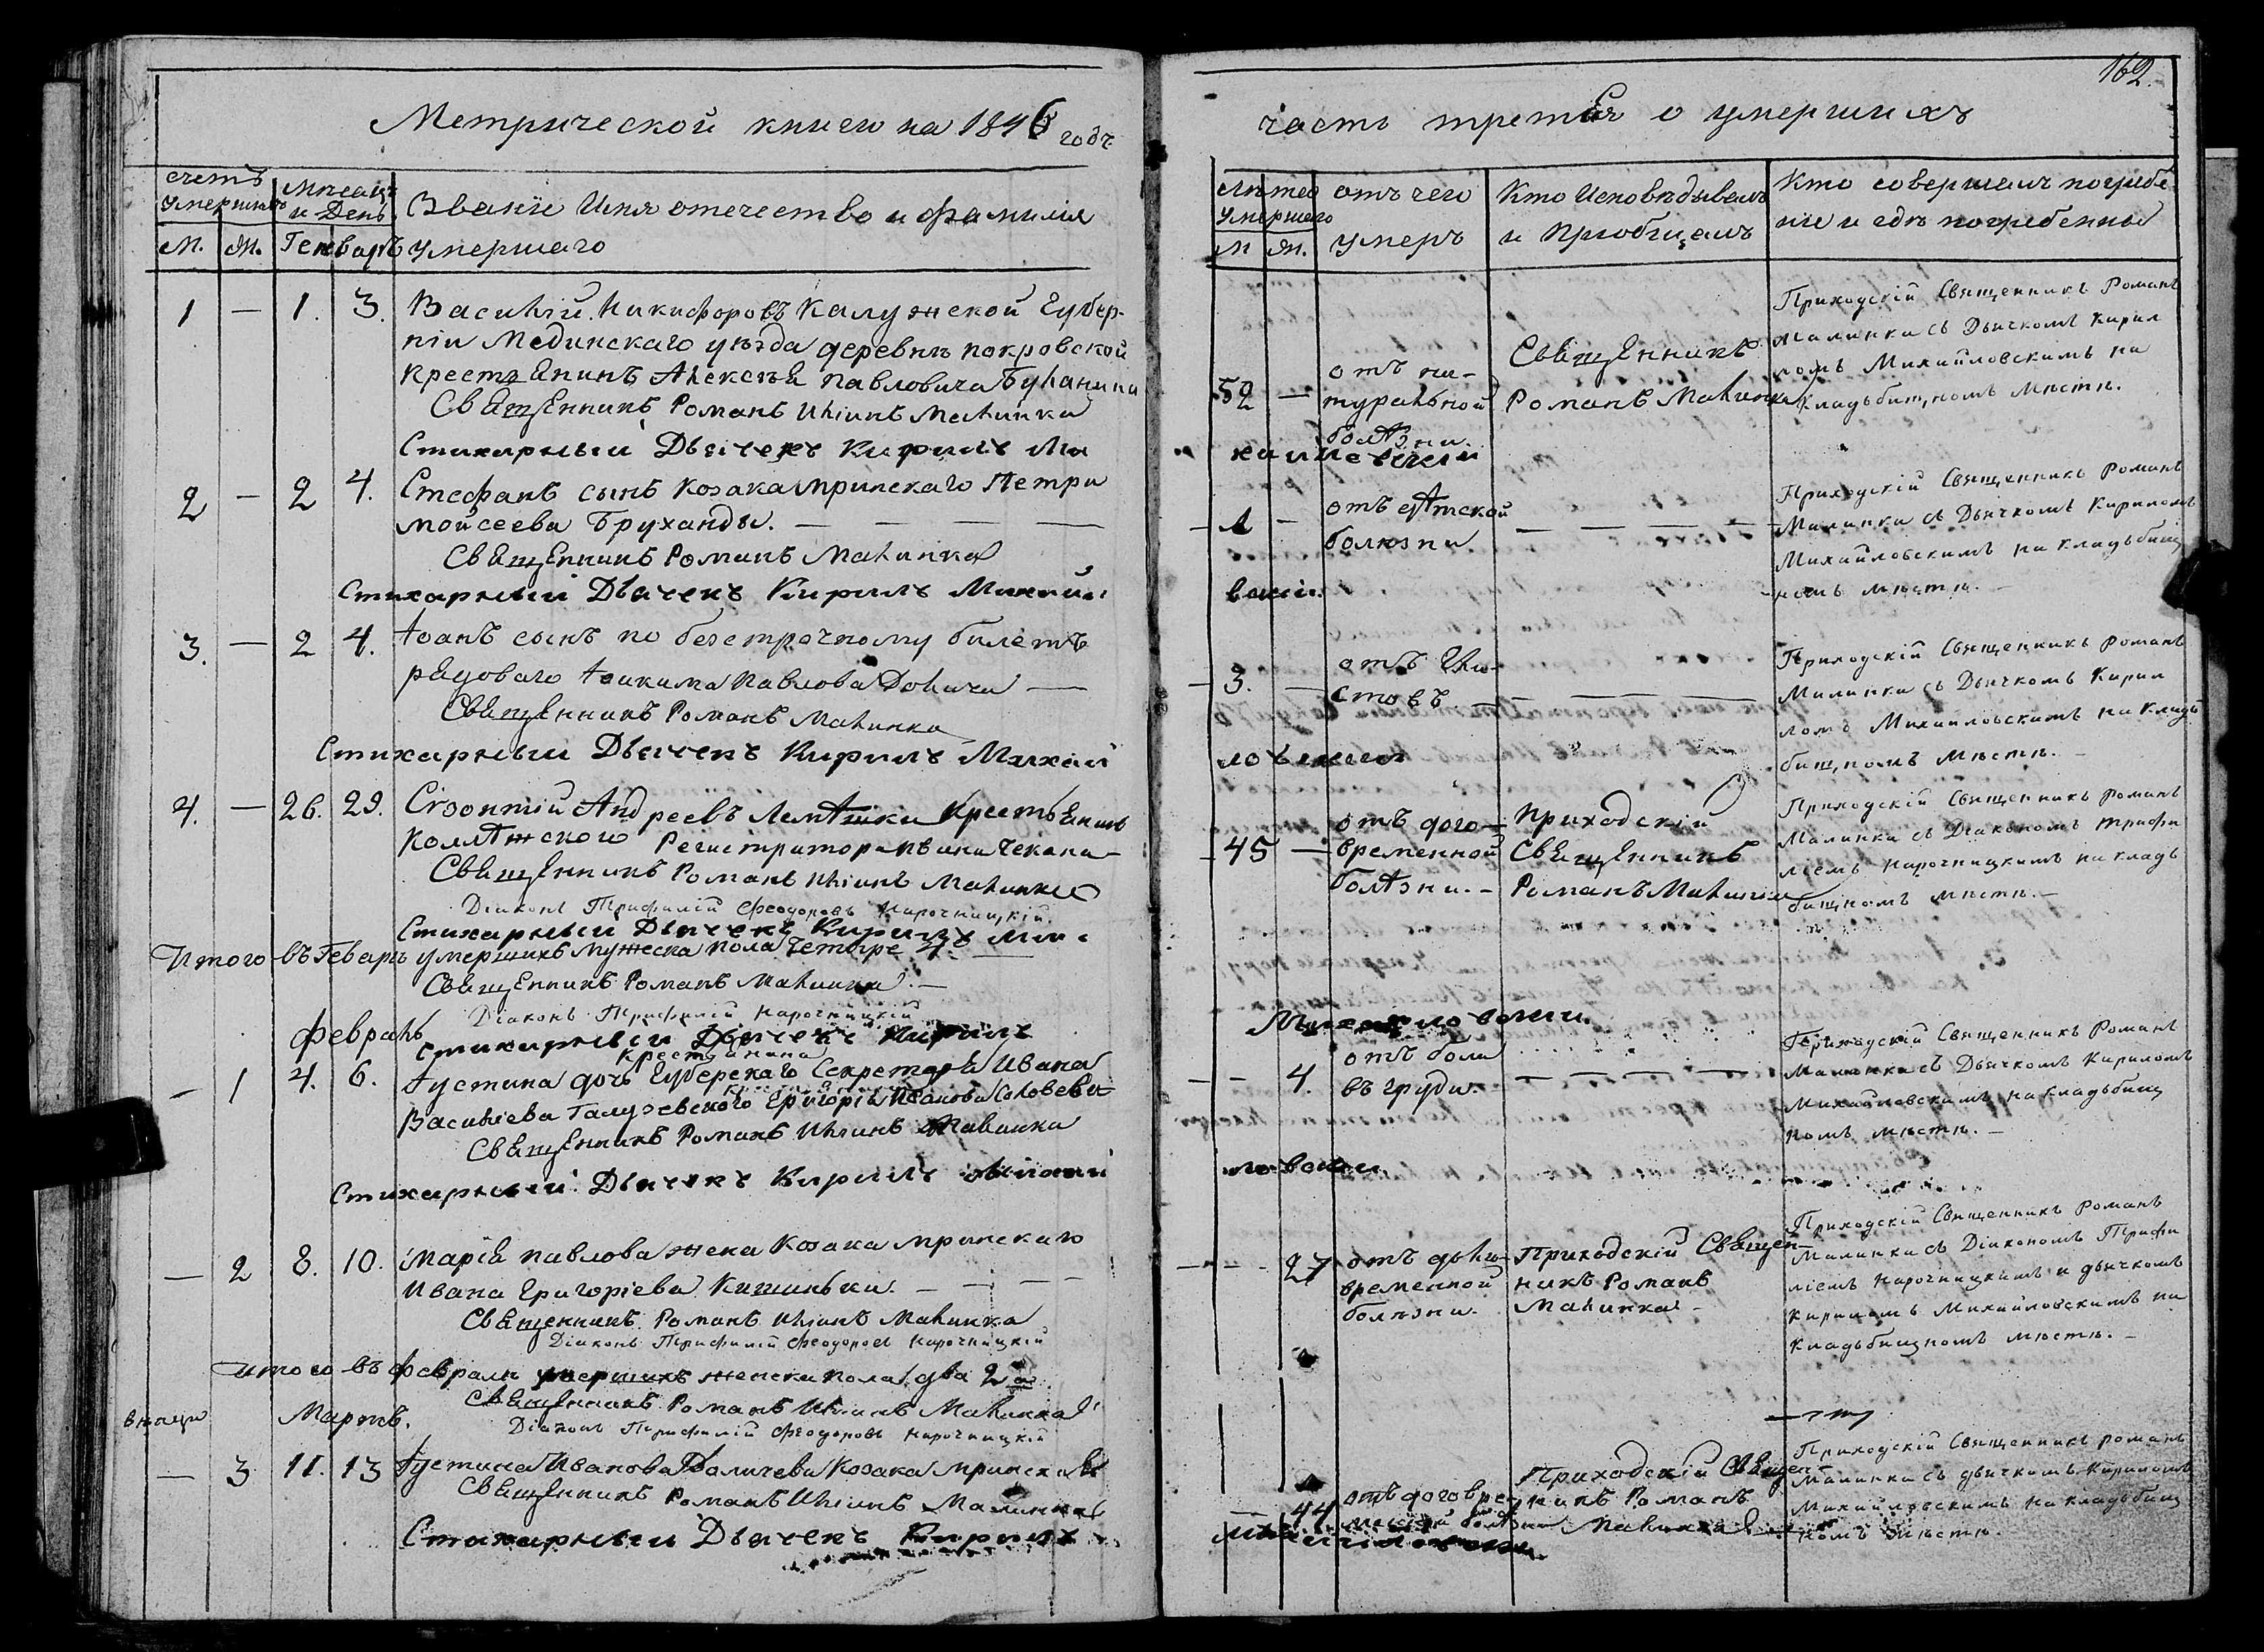 162.
Метрической книги на 1846 годъ
часть третья о умершихъ
счетъ умершихъ
Мѣсяцъ и День
Званіе Имя отечество и фамилія
умершаго
М. Ж. Генварь
Лѣта умершаго
М Ж.
отъ чего
умеръ
Кто Исповѣдывалъ
и Пріобщалъ
Кто совершалъ погребе
ніе и гдѣ погребенны
1 — 1. 3. Василій Никифоровъ Калужской Губер-
ніи Мединскаго уѣзда деревнѣ покровской
крестьянинъ Алексѣя павловича Буланина
Священникъ Романъ Иліинъ Малинка
Стихарный Дьячекъ Кирилъ Ми
хайловскій
52 —
отъ на-
туральной
болѣзни.
Священникъ
Романъ Малинка
Приходскій Священникъ Романъ
Малинка съ Дьячкомъ Кирил
ломъ Михайловскимъ на
Кладьбищномъ мѣстѣ.
2 — 2 4. Стефанъ сынъ козака мринскаго Петра
мойсеева Бруханды. — — — —
Священникъ Романъ Малинка
Стихарный Дьячекъ Кирилъ Михайло
вскій.
1 —
отъ дѣтской
болѣзни
— — — — —
Приходскій Священникъ Романъ
Малинка съ Дьячкомъ Кириломъ
Михайловскимъ на кладьбищ
номъ мѣстѣ. —
3. — 2 4. Іоанъ сынъ по безстрочному билетѣ
рядоваго Іоакима Павлова Долича —
Священникъ Романъ Малинка
Стихарный Дьячекъ Кирилъ Михай
ловскій
3. —
отъ Гли-
стовъ —
— ———
Приходскій Священникъ Романъ
Малинка съ Дьячкомъ Кирил
ломъ Михайловскимъ на кладь
бищномъ мѣстѣ. —
4. — 26. 29. Созонтій Андреевъ крестьянинъ
Колѣжского Регистратора
Священникъ Романъ Иліинъ Малинка
Діаконъ Трифилій Феодоровъ Нарочницкій.
Стихарный Дьячекъ Кирилъ Ми
45 —
отъ долго-
временной
болѣзни. —
приходскій
Священникъ
Романъ Малинка
Приходскій Священникъ Романъ
Малинка съ Діакономъ Трифи
ліемъ Нарочницкимъ на кладь
бищномъ мѣстѣ. —
Итого въ Геварѣ умершихъ мужеска пола четыре 4. —
Священникъ Романъ Малинка. —
Діаконъ Трифилій Нарочницкій
Стихарный Дьячекъ Кирилъ
Михайловскій.
февраль
крестьянина
— 1 4. 6. Іустина дочь Губерскаго Секретаря Ивана
Василіева Григорія Иванова Соловея
Священникъ Романъ Иліинъ Малинка
Стихарный Дьячекъ Кирилъ Михай
ловскій
— — 4.
отъ боли
въ груди. —
— — — —
Приходскій Священникъ Романъ
Малинка съ Дьячкомъ Кириломъ
Михайловскимъ на кладьбищ
номъ мѣстѣ. —
— 2 8. 10. Марія павлова жена Козака мринскаго
Ивана Григоріева Кишиньки. — — — —
Священникъ Романъ Иліинъ Малинка
Діаконъ Трифилій Феодоровъ Нарочницкій
— 27
отъ долго-
временной
болѣзни.
Приходскій Священ-
никъ Романъ
Малинка —
Приходскій Священникъ Романъ
Малинка съ Діакономъ Трифи
ліемъ Нарочницкимъ и дьячкомъ
Кириломъ Михайловскимъ на
Кладьбищномъ мѣстѣ. —
Итого въ февралѣ умершихъ женска пола два 2
Священникъ Романъ Иліинъ Малинка
Діаконъ Трифилій Феодоровъ Нарочницкій
Мартъ.
— 3 11. 13 Іустина Иванова Доличева Козака мринскаго
Священникъ Романъ Иліинъ Малинка
Стихарный Дьячекъ Кирилъ
Михайловскій.
— 44
отъ долговре
менной болѣзни
Приходскій Священ-
никъ Романъ
Малинка —
Приходскій Священникъ Романъ
Малинка съ дьячкомъ Кириломъ
Михайловскимъ на кладьбищ
номъ мѣстѣ.